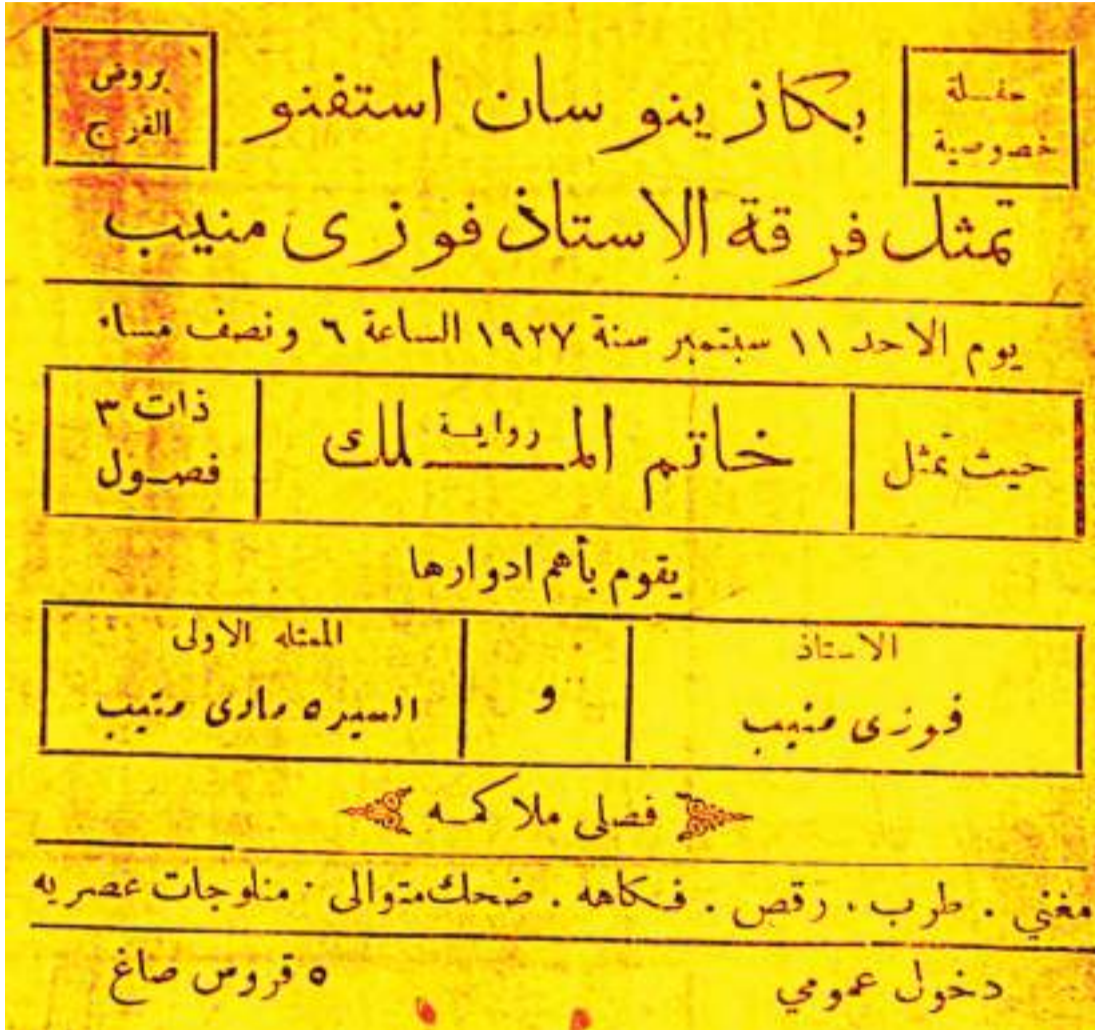 حفلة خصوصية
بكازينو سان استفنو
بروض الفرج
تمثل فرقة الاستاذ فوزى منيب
يوم الاحد ١١ سبتمبر سنة ١٩٢٧ الساعة ٦ ونصف مساء
حيث تمثل
رواية
خاتم الملك
ذات ٣ فصول
يقوم بأهم ادوارها
الاستاذ
فوزى منيب
و
الممثله الاولى
السيده مارى منيب
فصلى ملاكمه
مغنى . طرب . رقص . فكاهه . ضحك متوالى . منلوجات عصريه
دخول عمومي
٥ قروش صاغ